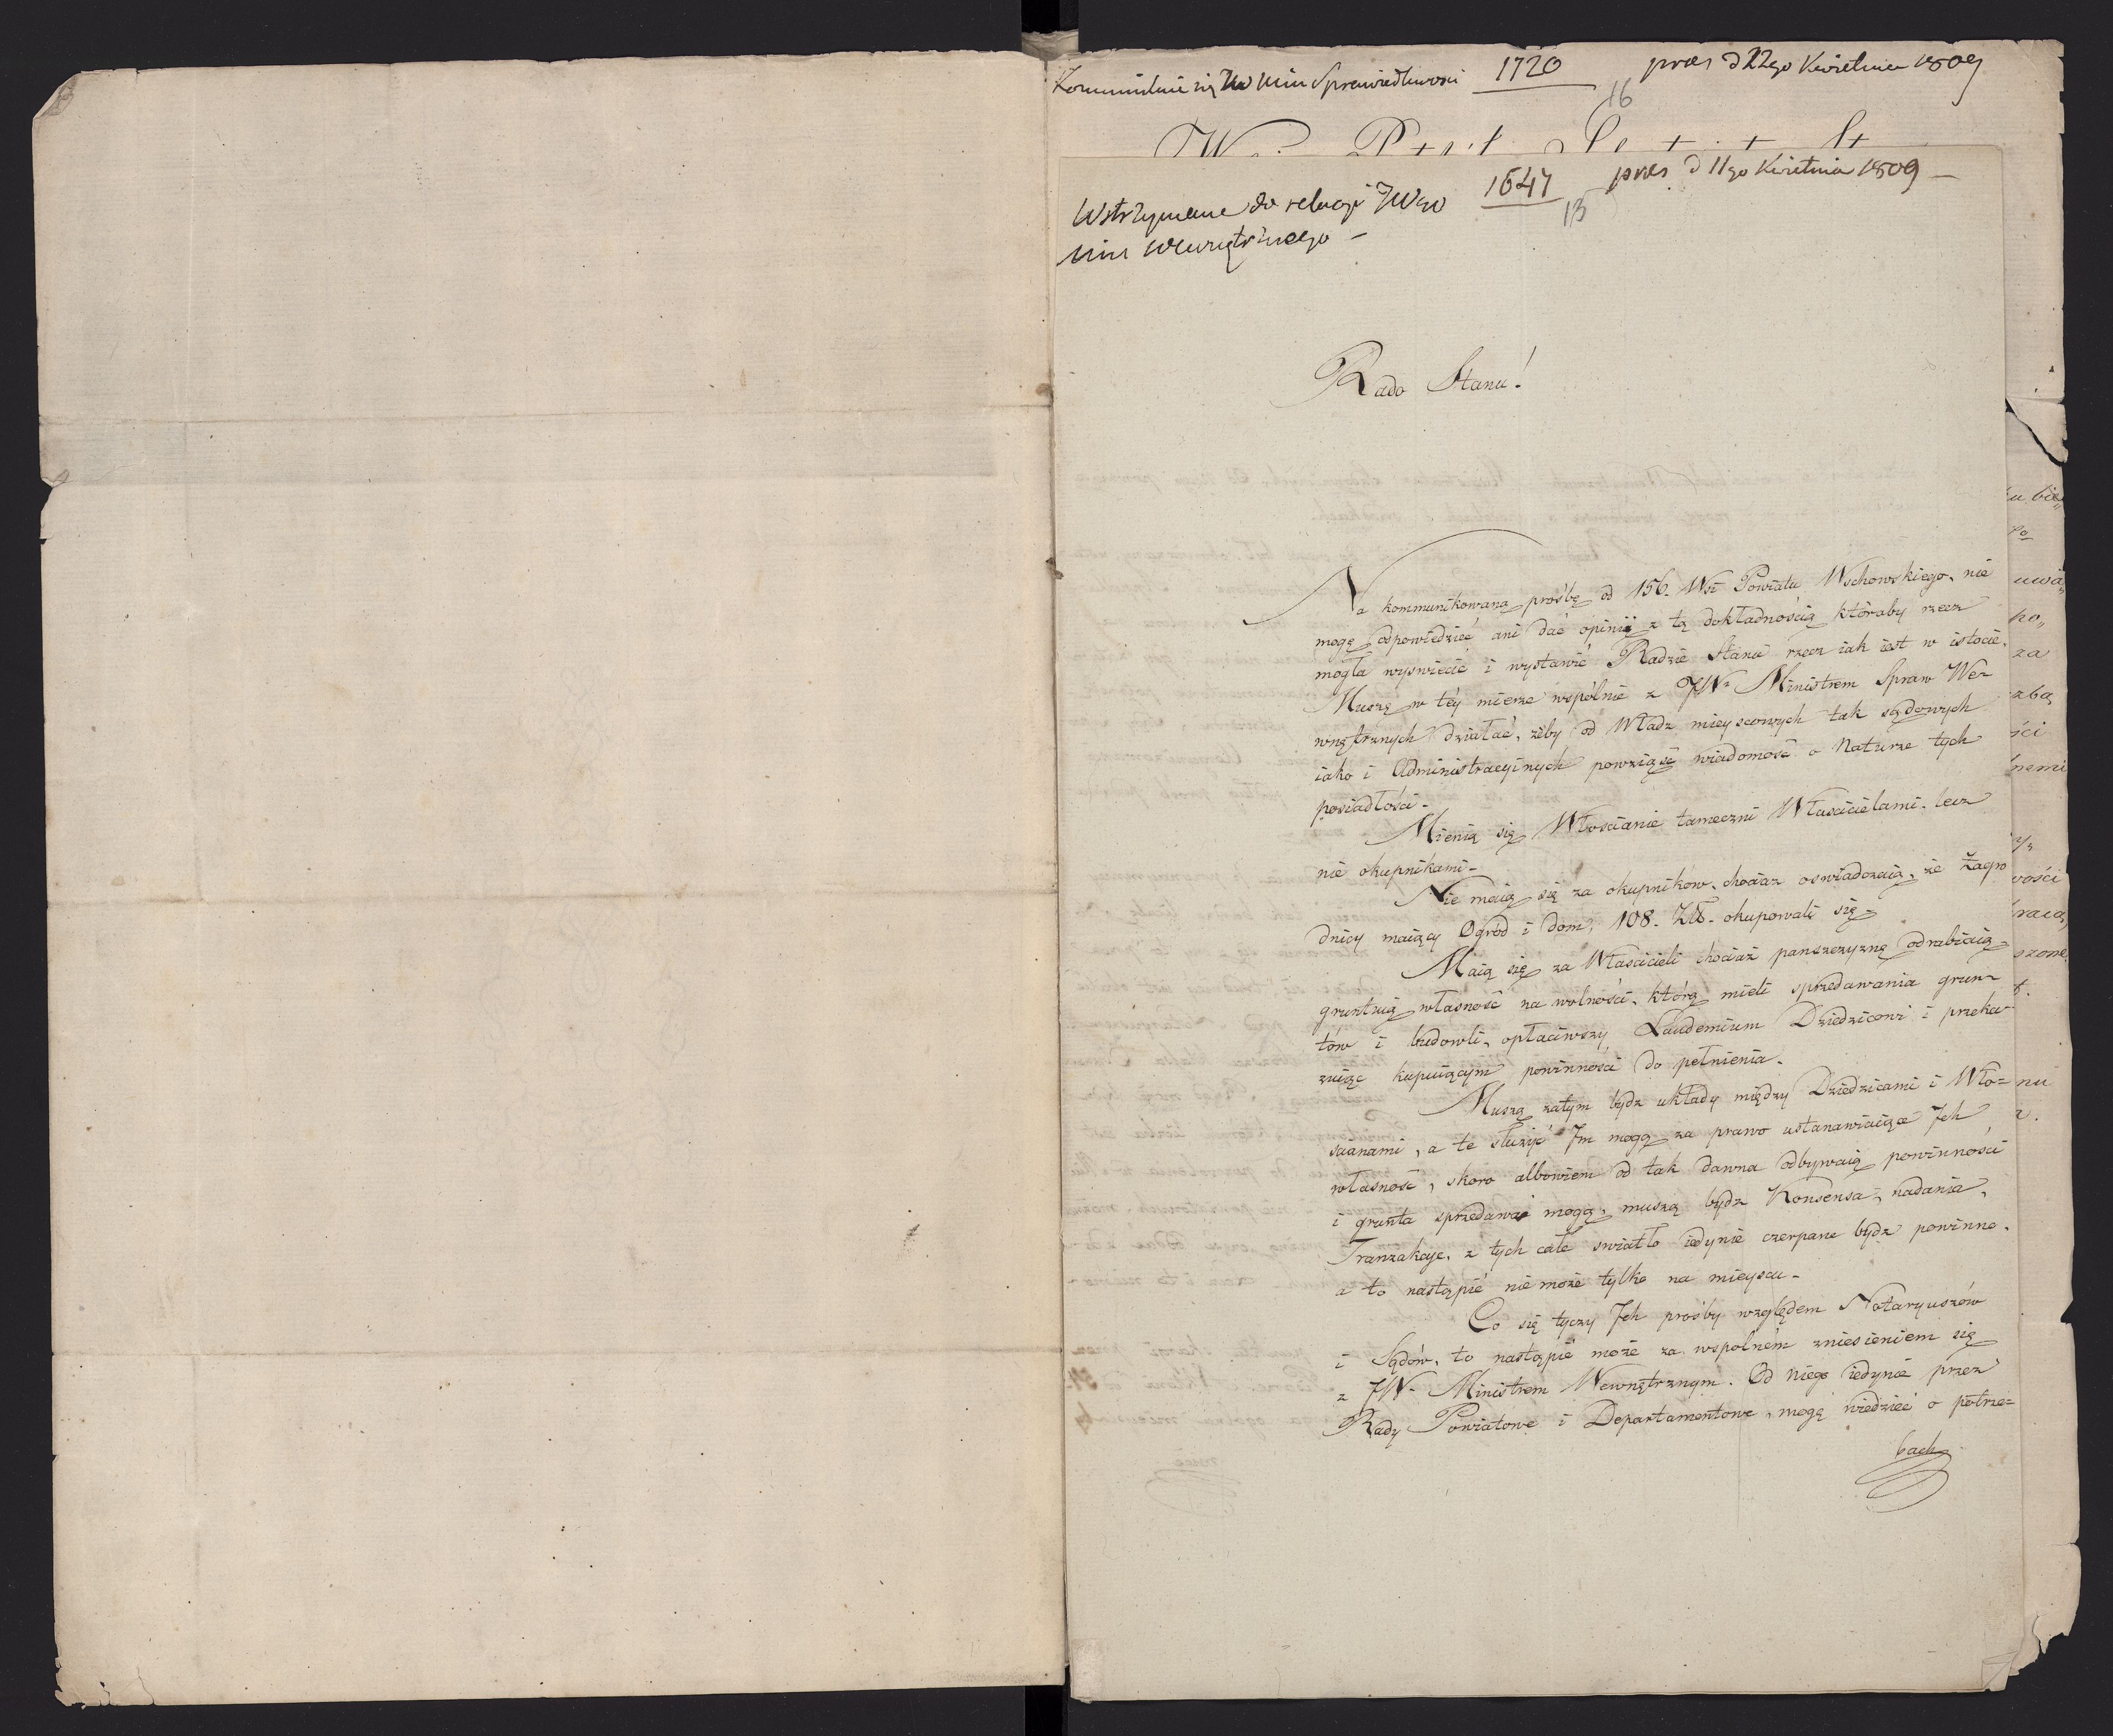 Kommunikuie się JW Min Sprawiedliwosci 1720 præs d 22go Kwietnia 1809
16
Wstrzymane do relacyi JWgo 1647 præs d 11go Kwietnia 1809 –
Min Wewnętrznego – 15
Rado Stanu!
Na kommunikowaną prośbę od 156. Wsi Powiatu Wschowskiego, nie
mogę odpowiedzieć ani dać opinii z tą dokładnością któraby rzecz
mogła wyswiecić i wystawić Radzie Stanu rzecz iak iest w istocie.
Muszę w tey mierze wspólnie z JW. Ministrem Spraw We-
wnętrznych działać, żeby od Władz mieyscowych tak sądowych
iako i Administracyinych powziąść wiadomość o Naturze tych
posiadłości.
Mienią się Włoscianie tameczni Włascicielami, lecz
nie okupnikami.
Nie maią się za okupników, chociaz oswiadczaią, że Zagro
dnicy maiący Ogród i dom, 108. Zł. okupowali się.
Maią się za Włascicieli chociaż panszczyznę odrabiaią
gruntuią własność na wolności, którą mieli sprzedawania grun-
tów i budowli, opłaciwszy Laudemium Dziedzicowi i przeka-
zuiąc kupuiącym powinności do pełnienia.
Muszą zatym bydz układy między Dziedzicami i Wło=
scianami, a te służyć Im mogą za prawo ustanawiaiące Ich
własność, skoro albowiem od tak dawna odbywaią powinności
i grunta sprzedawać mogą, muszą bydz Konsensa, nadania,
Tranzakcye, z tych całe swiatło iedynie czerpane bydz powinno,
a to nastąpić nie może tylko na mieyscu.
Co się tyczy Ich prośby względem Notaryuszów
i Sądów, to nastąpić może za wspólném zniesieniem się
z JW. Ministrem Wewnętrznym. Od niego iedynie przez
Rady Powiatowe i Departamentowe, mogę wiedzieć o potrze=
bach